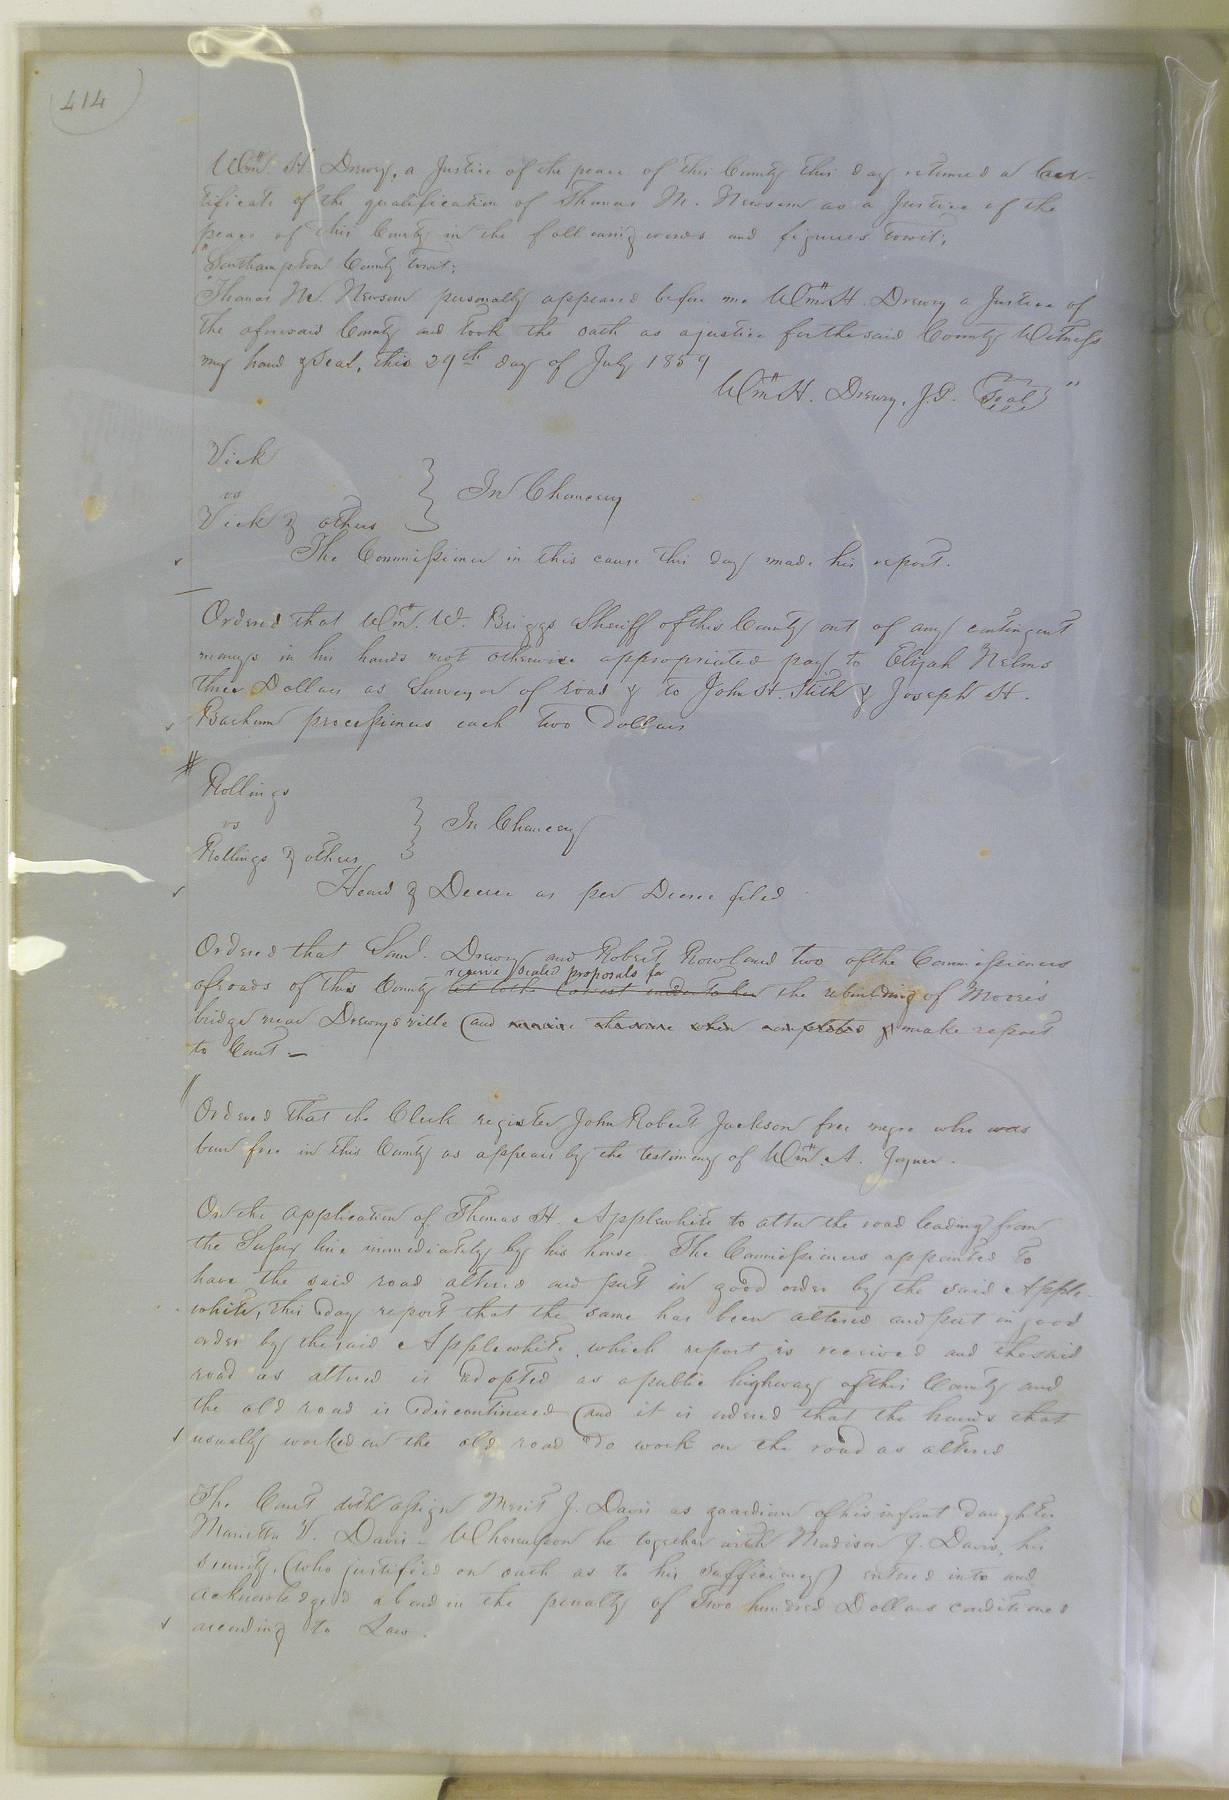 414
Wm. H. Drewry, a Justice of the peace of this County this day returned a Cer-
tificate of the qualification of Thomas M. Newsom as a Justice of the
peace of this County in the following words and figures towit;
"Southampton County towit;
"Thomas M. Newsom personally appeared before me Wm. H. Drewry a Justice of
the aforesaid County and took the oath as a justice for the said County Witness
my hand & Seal, this 29th day of July 1859
Wm. H. Drewry, J.P. (Seal) "
Vick
vs
Vick & others } In Chancery
The Commissioner in this cause this day made his report.
Ordered that Wm. W. Briggs Sheriff of this County out of any contingent
moneys in his hands not otherwise appropriated pay to Elijah Nelms
three Dollars as Surveyor of road & to John H. Stith & Joseph H.
Barham processioners each two Dollars
Rollings
vs
Rollings & others } In Chancery
Heard & Decree as per Decree filed
Ordered that Saml. Drewry and Robert Rowland two of the Commissioners
receive sealed proposals for
of roads of this County let to the lowest undertaker the rebuilding of Moore's
bridge near Drewrysville (and receive the same when completed & make report
to Court —
Ordered that the Clerk register John Robert Jackson free negro who was
born free in this County as appears by the testimony of Wm. A. Joyner.
On the application of Thomas H. Applewhite to alter the road leading from
the Sussex line immediately by his house. The Commissioners appointed to
have the said road altered and put in good order by the said Apple-
white, this day report that the same has been altered and put in good
order by the said Applewhite, which report is received and the said
road as altered is adopted as a public highway of this County and
the old road is discontinued (and it is ordered that the hands that
usually worked on the old road do work on the road as altered
The Court doth assign Merit J. Davis as guardian of his infant daughter
Marietta V. Davis – Whereupon he together with Madison J. Davis, his
security, (who justified on oath as to his sufficiency) entered into and
acknowledged a bond in the penalty of Two hundred Dollars conditioned
according to Law.